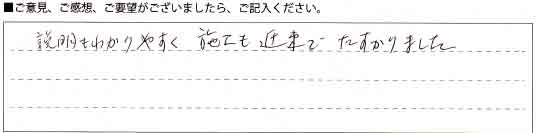 ■ご意見、ご感想、ご要望がございましたら、ご記入ください。
説明もわかりやすく 施工も 迅速で たすかりました